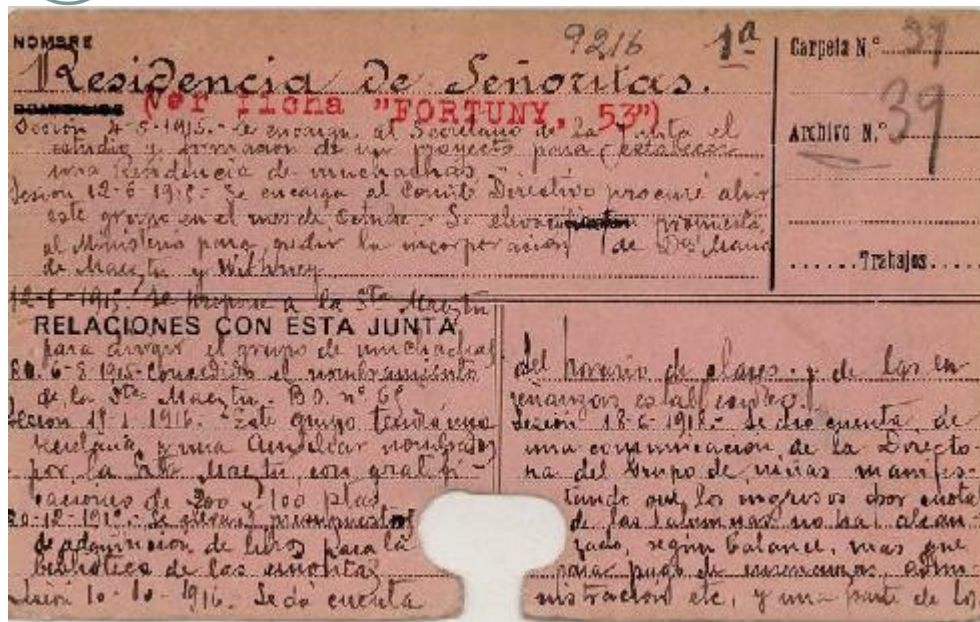 NOMBRE
9216 1ª
Residencia de Señoritas.
(Ver ficha "FORTUNY, 53")
Carpeta N.º 39
Archivo N.º 39
Trabajos
Sesión 4-5-1915.- Se encarga al Secretario de la Junta el
estudio y formación de un proyecto para establecer
una Residencia de muchachas.
Sesion 12-6 1915- Se encarga al Comité Directivo procure abrir
este grupo en el mes de Octubre. Se propuesta
al Ministerio para pedir la incorporación de Dª Maria
de Maeztu y Withney
12-6-1915 Se propone a la Sta Maeztu
RELACIONES CON ESTA JUNTA
para dirigir el grupo de muchachas
6-8 1915- Concedido el nombramiento
de la Sta Maeztu. B.O. nº 65
Sesion 18-1 1916.- Este grupo tendrá una
y una Auxiliar
por la Sta Maeztu, con gratifi-
caciones de 200 y 100 ptas
de adquisicion de libros para la
biblioteca de las señoritas
Sesión 10-10-1916. Se dá cuenta
del horario de clases y de las en-
señanzas establecidas.
Sesión 18-6 1918.- Se dió cuenta de
una comunicacion de la Directo-
ra del Grupo de niñas manifes-
tando que los ingresos por cuota
de las alumnas no ha alcan-
zado, según balance, mas que
para pago de enseñanzas, admi-
nistracion etc, y una parte de los